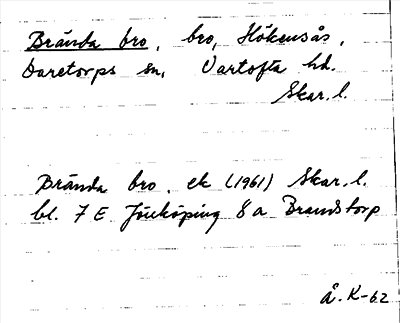 Brända bro, bro, Hökensås,
Daretorps sn, Vartofta hd.
Skar. l.
Brända bro, ek (1961) Skar. l.
bl. 7 E Jönköping 8 a Brandstorp
Å. K-62